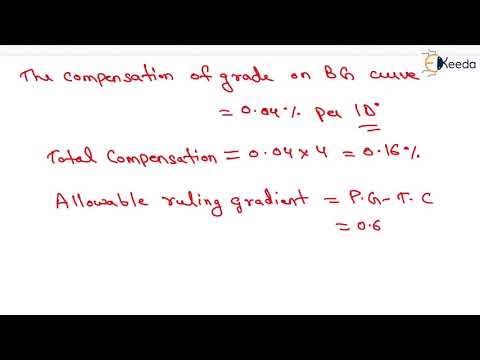 The compensation of grade on BG curve
Keeda
= 0.04% per 1D°
Total Compensation = 0.04 × 4 = 0.16%
Allowable ruling gradient = P.G - T.C
= 0.6